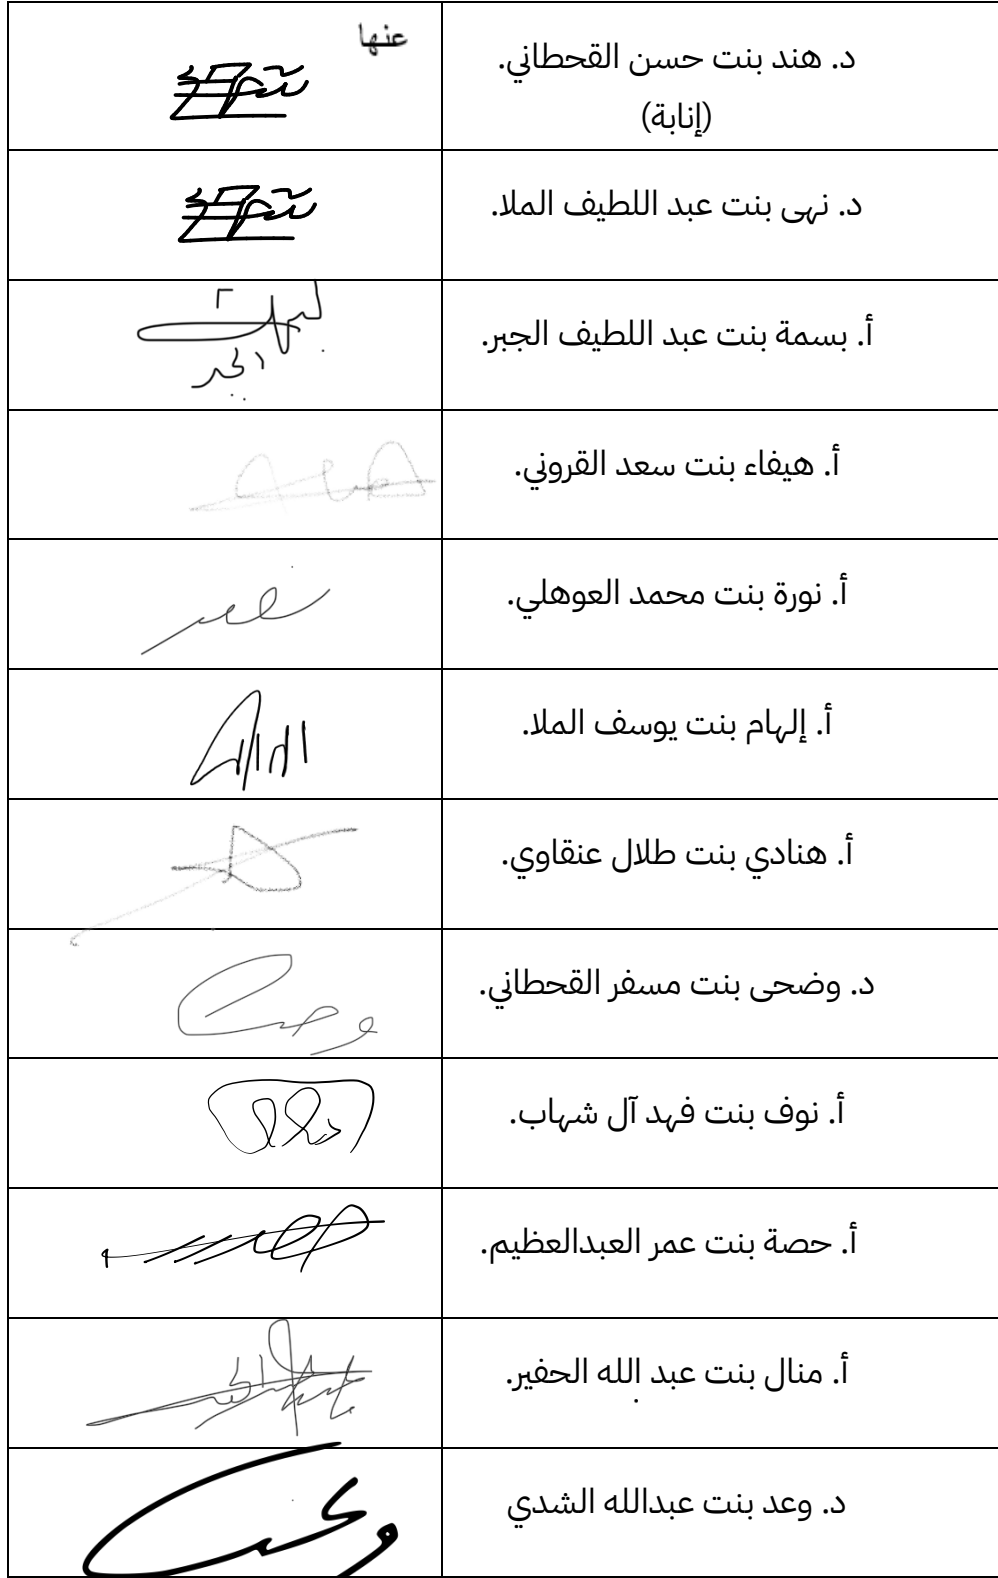 د. هند بنت حسن القحطاني.
(إنابة)
عنها
د. نهى بنت عبد اللطيف الملا.
أ. بسمة بنت عبد اللطيف الجبر.
أ. هيفاء بنت سعد القروني.
أ. نورة بنت محمد العوهلي.
أ. إلهام بنت يوسف الملا.
أ. هنادي بنت طلال عنقاوي.
د. وضحى بنت مسفر القحطاني.
أ. نوف بنت فهد آل شهاب.
أ. حصة بنت عمر العبدالعظيم.
أ. منال بنت عبد الله الحفير.
د. وعد بنت عبدالله الشدي